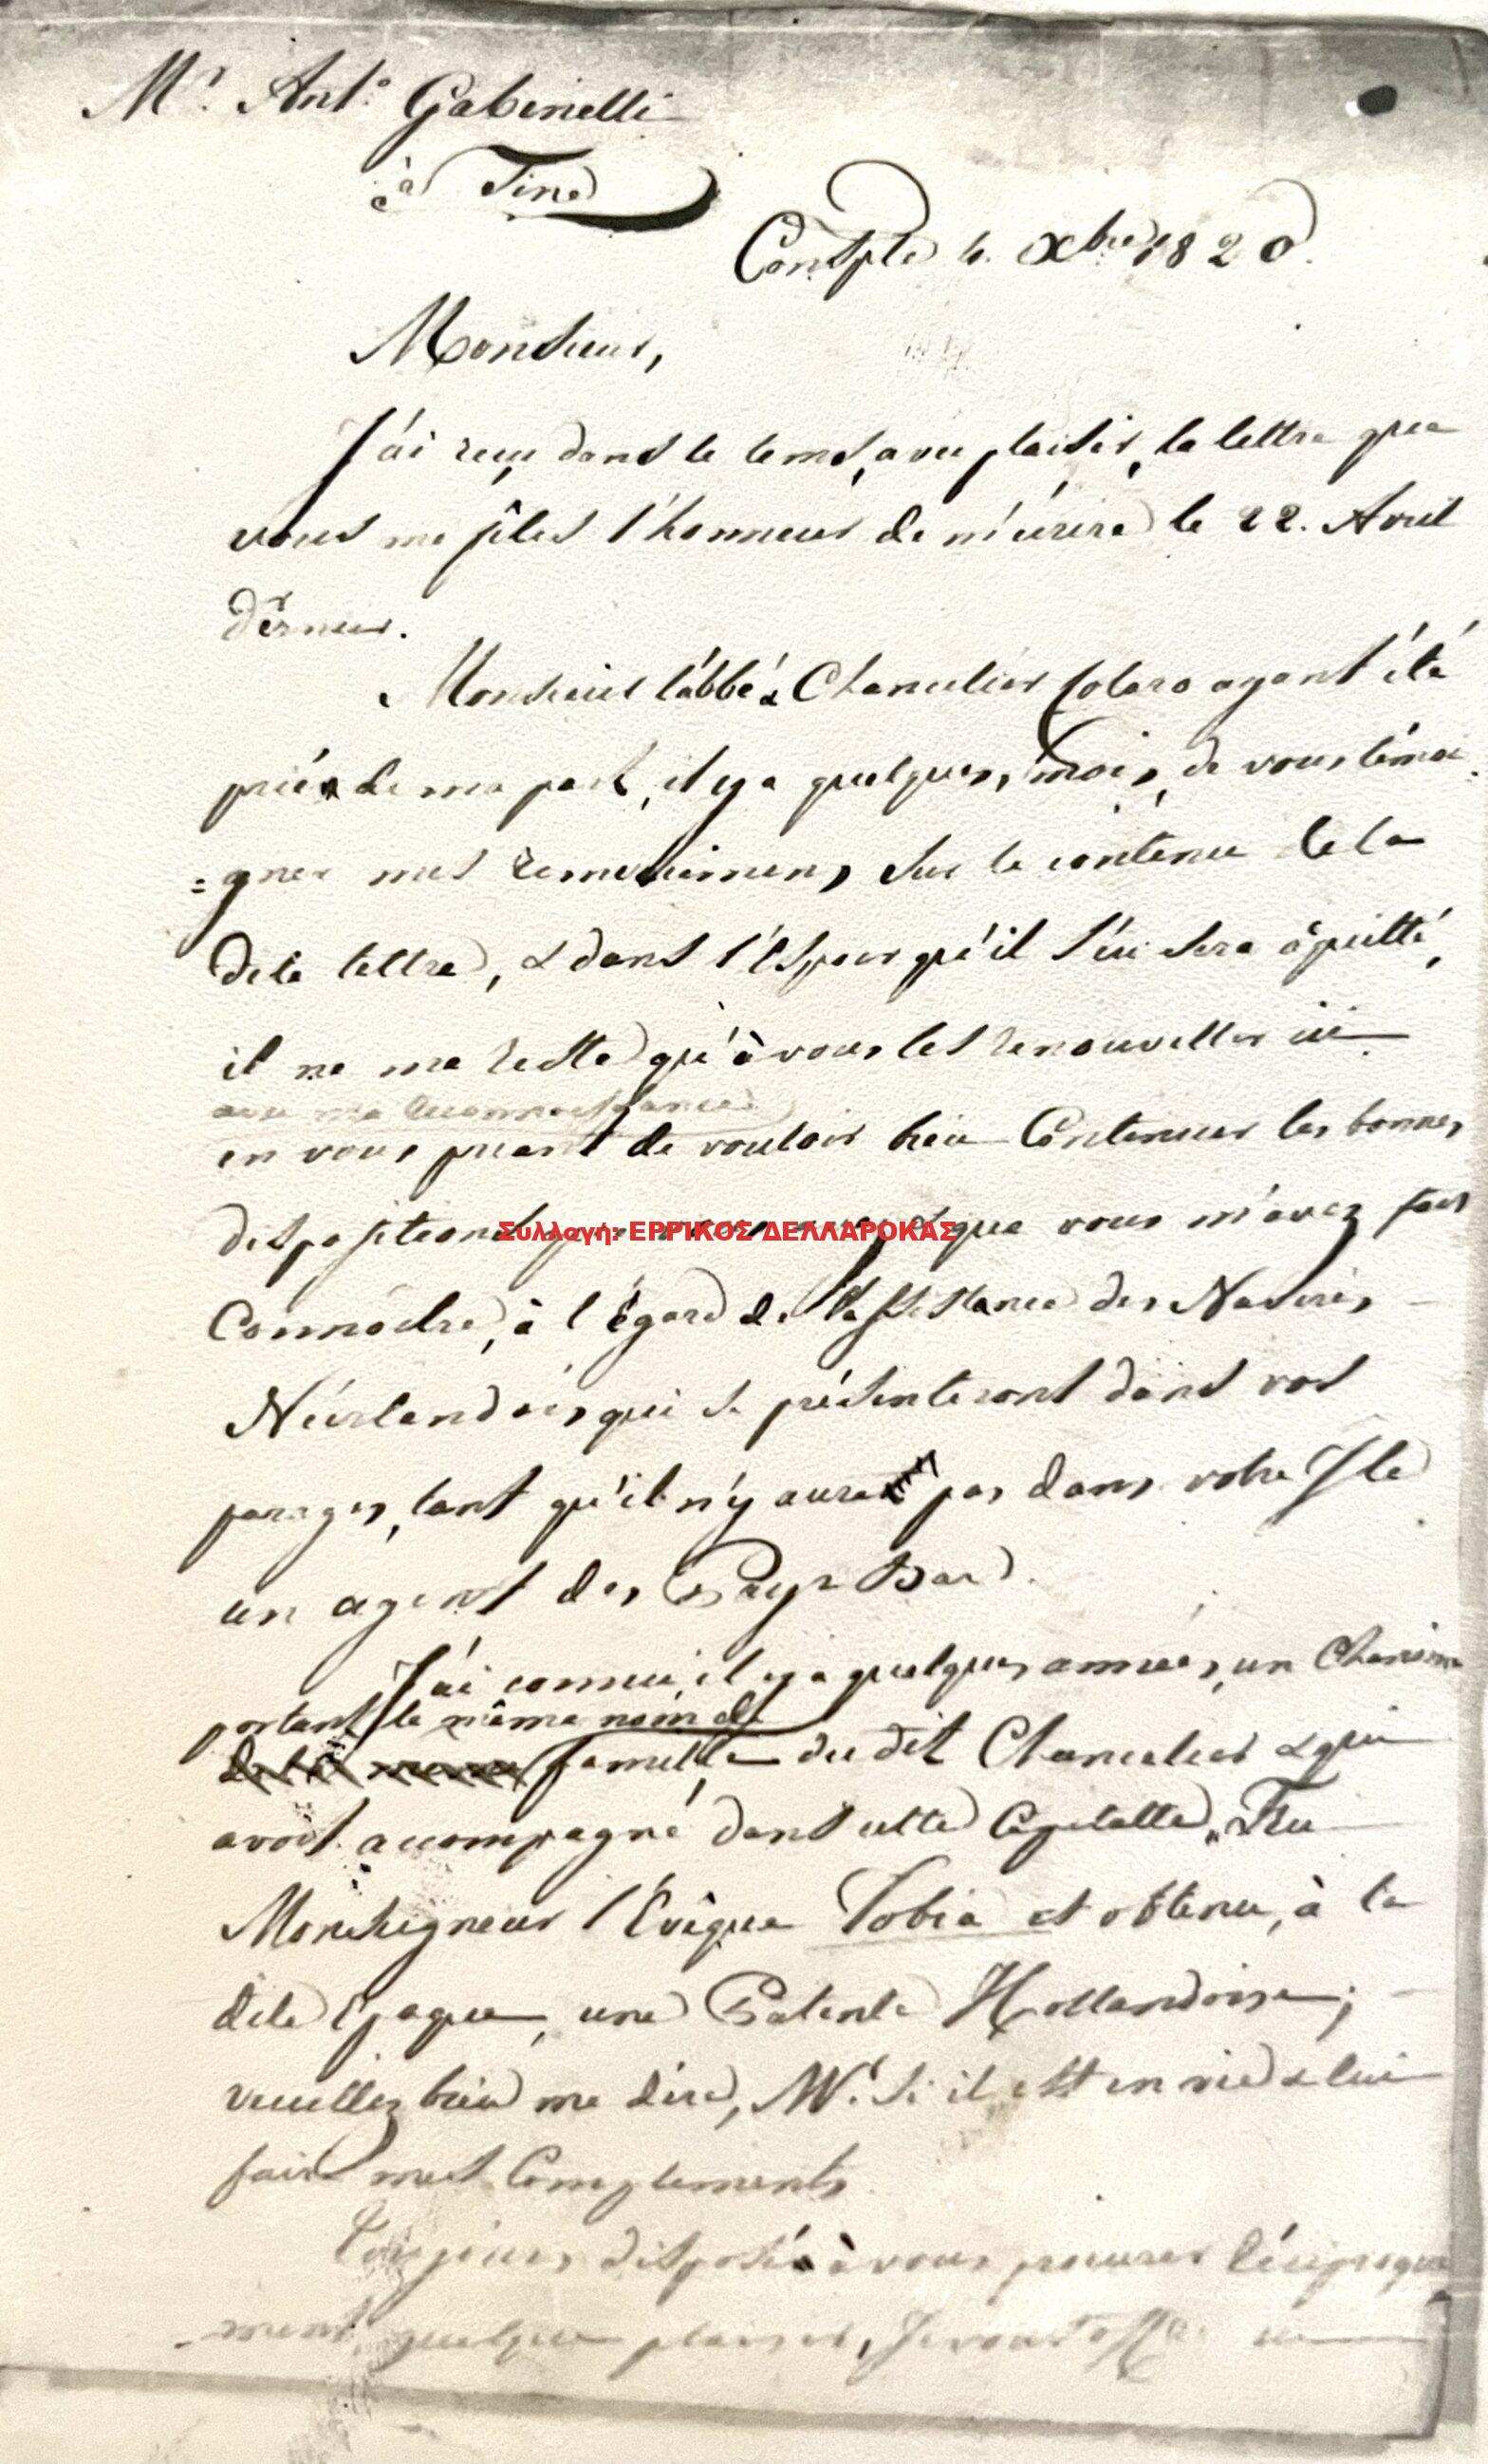 Mr. Anto. Gabinelli
à Tine
Constple 4. Xbre 1820.
Monsieur,
J'ai reçu dans le tems, avec plaisir, la lettre que
vous me fîtes l'honneur de m'écrire le 22. Avril
dernier.
Monsieur l'abbé & Chancelier Colaro ayant été
prié de ma part, il y a quelques mois, de vous témoi
=gner mes remercimens sur le contenu de la
dite lettre, & dans l'espoir qu'il s'en sera acquitté,
il ne me reste qu'à vous les renouveller ici
avec ma reconnoissance
en vous priant de vouloir bien Continuer les bonnes
dispositions que vous m'avez fait
Συλλογή: ΕΡΡΙΚΟΣ ΔΕΛΛΑΡΟΚΑΣ
Connoitre, à l'égard de l'assistance des Navires
Néerlandois qui se présenteront dans vos
parages, tant qu'il n'y aura pas dans votre Isle
un agent des Pays-Bas.
J'ai connu, il y a quelques années, un Chanoine
portant le même nom de
de la même famille du dit Chancelier & qui
avoit accompagné dans cette Capitalle, Feu
Monseigneur l'Evêque Tobia et obtenu, à la
dite Epoque, une Patente Hollandoise;
veuillez bien me dire, Mr. si il est en vie & lui
faire mes Complements.
Toujours disposé à vous procurer réciproque
-ment quelque plaisir, Je vous